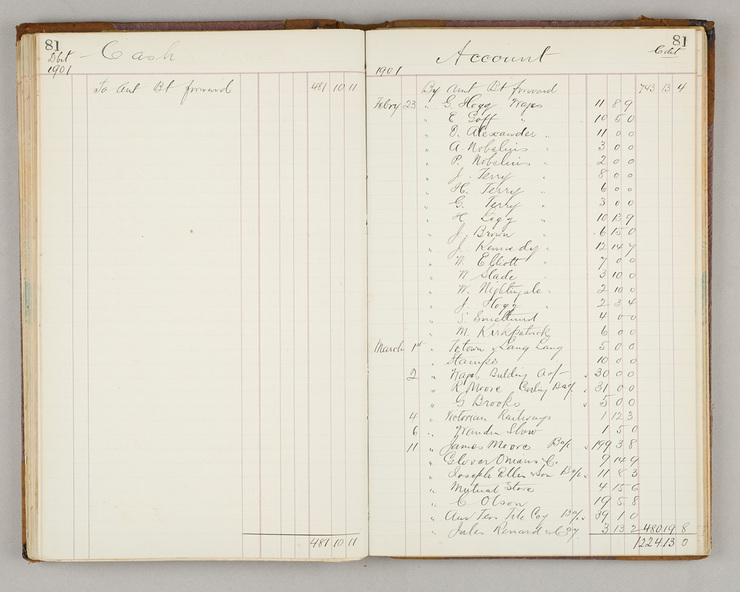 81
Cash
1901
To Amt Bt forward 481 10 11
481 10 11
81
Account
1901
By Amt Bt forward 743 13 4
Febry 23 " G. Hogg Wages 11 8 9
" E Goff " 10 5 0
" D. Alexander " 11 0 0
" A Nobelius " 3 0 0
" P. Nobelius " 2 0 0
" J. Terry " 8 0 0
" H. Terry " 6 0 0
" G. Terry " 3 0 0
" H Legg " 10 13 9
" J. Brown " 6 15 0
" J. Kennedy " 12 14 7
" W Elliott " 7 0 0
" W Slade " 3 10 0
" W. Nightingale " 2 10 0
" J Hogg " 2 3 4
" S. 4 0 0
" M. Kirkpatrick 6 0 0
March 1st " Lang Lang 5 0 0
" Stamps 10 0 0
2 " Wages Building A/c 30 0 0
" R Moore 31 0 0
" G Brooks 5 0 0
4 " Victorian Railways 1 12 3
6 " Wandin Show 1 5 0
11 " James Moore 199 3 8
" Glover Onians & C. 9 14 9
" Joseph Ellis & Son 11 8 3
" Mutual Store 4 15 6
" C Olson 19 5 8
" Aus Ter Tile Coy 39 1 0
" Jules Renard & Coy 3 13 2 480 19 8
1224 13 0